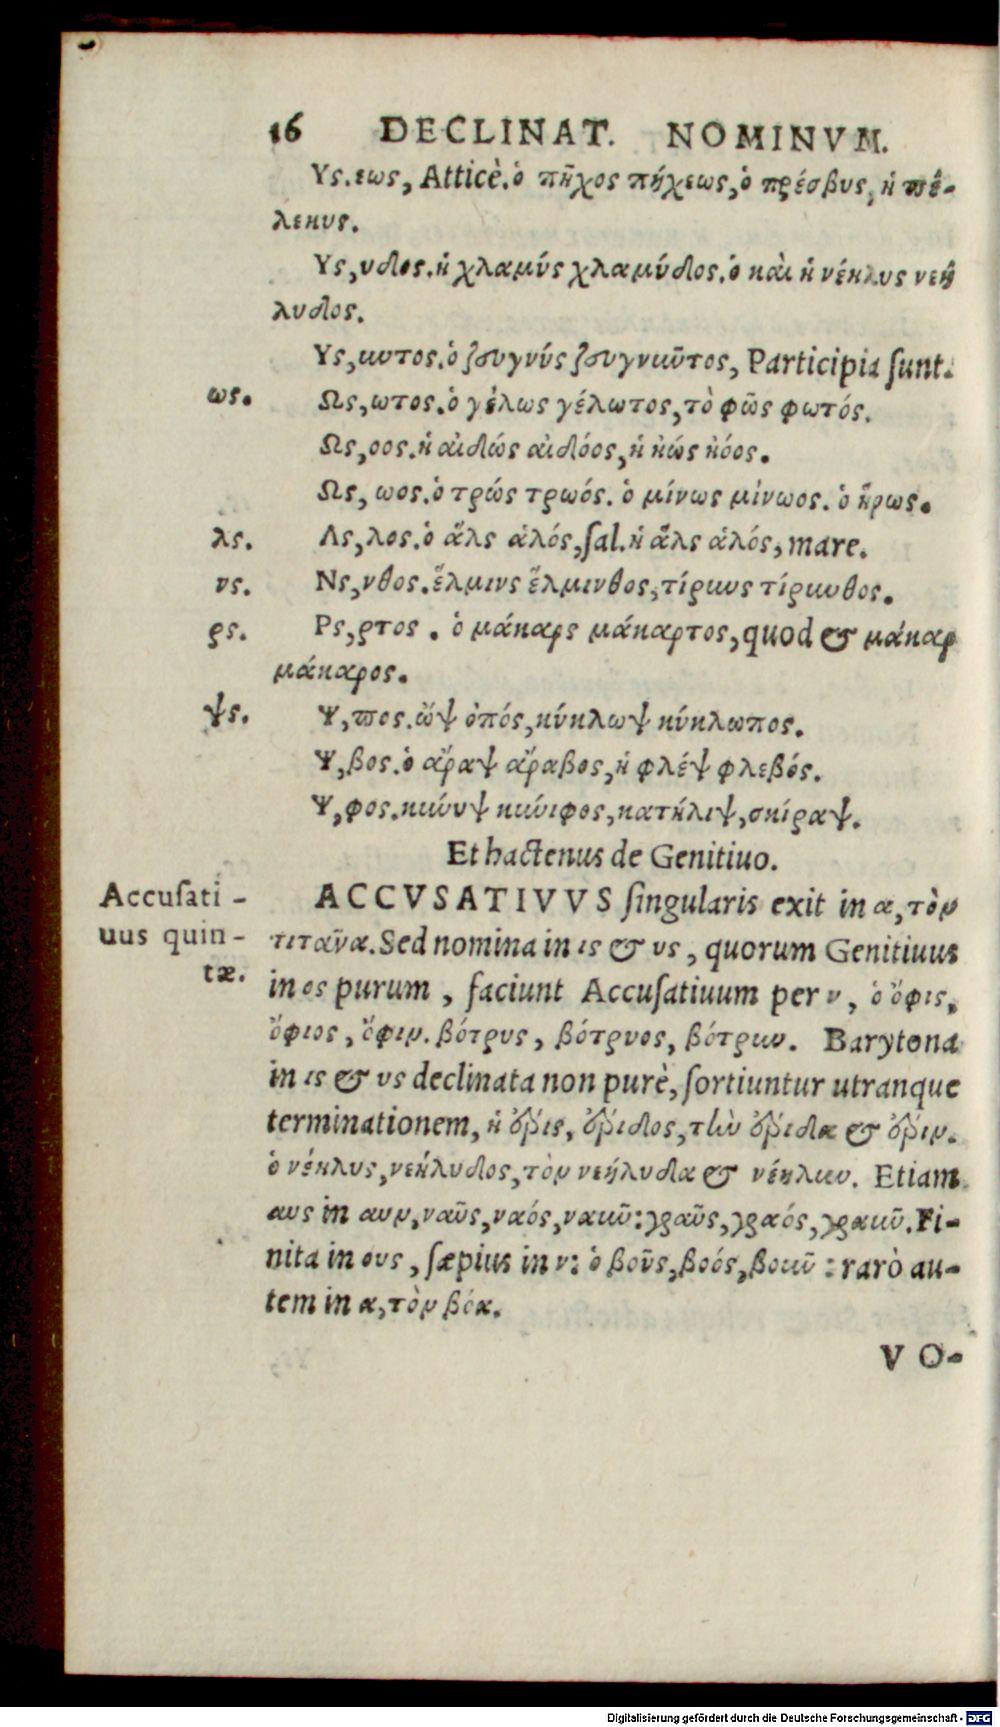 16 DECLINAT. NOMINVM.
Υς.εως, Atticè.ὁ πῆχος πήχεως,ὁ πρέσβυς, ἡ πέ-
λεκυς.
Υς,υδος.ἡ χλαμύς χλαμύδος.ὁ καὶ ἡ νέηλυς νεή
λυδος.
Υς,υντος.ὁ ζευγνύς ζευγνιῦτος, Participia ſunt.
ως. Ως,ωτος.ὁ γέλως γέλωτος,τὸ φῶς φωτός.
Ως,οος.ἡ αἰδώς αἰδόος,ἡ ἠώς ἠόος.
Ως, ωος.ὁ τρώς τρωός. ὁ μίνως μίνωος. ὁ ἥρως.
λς. Λς,λος.ὁ ἅλς ἁλός,ſal.ἡ ἅλς ἁλός, mare.
νς. Νς,νθος.ἕλμινς ἕλμινθος,τίρυνς τίρυνθος.
ρς. Ρς,ρτος . ὁ μάκαρς μάκαρτος,quod & μάκαρ
μάκαρος.
ψς. Ψ,πος.ὤψ ὀπός,κύκλωψ κύκλωπος.
Ψ,βος.ὁ ἄραψ ἄραβος,ἡ φλέψ φλεβός.
Ψ,φος.κιώνυψ κιώιφος,κατήλιψ,σκίραψ.
Et hactenus de Genitiuo.
Accuſati- ACCVSATIVVS ſingularis exit in α,τὸν
uus quin- τιτᾶνα.Sed nomina in ις & υς, quorum Genitiuus
tæ. in ος purum , faciunt Accuſatiuum per ν, ὁ ὄφις,
ὄφιος, ὄφιν. βότρυς, βότρυος, βότρυν. Barytona
in ις & υς declinata non purè, ſortiuntur utranque
terminationem, ἡ ὄρις, ὄριδος,τὴν ὄριδα & ὄριν.
ὁ νέηλυς,νεήλυδος,τὸν νεήλυδα & νέηλυν. Etiam
αυς in αυν,ναῦς,ναός,ναῦν:γραῦς,γραός,γραῦν.Fi-
nita in ους, ſæpius in ν: ὁ βοῦς,βοός,βοῦν : rarò au-
tem in α,τὸν βόα.
V O-
Digitalisierung gefördert durch die Deutsche Forschungsgemeinschaft - DFG